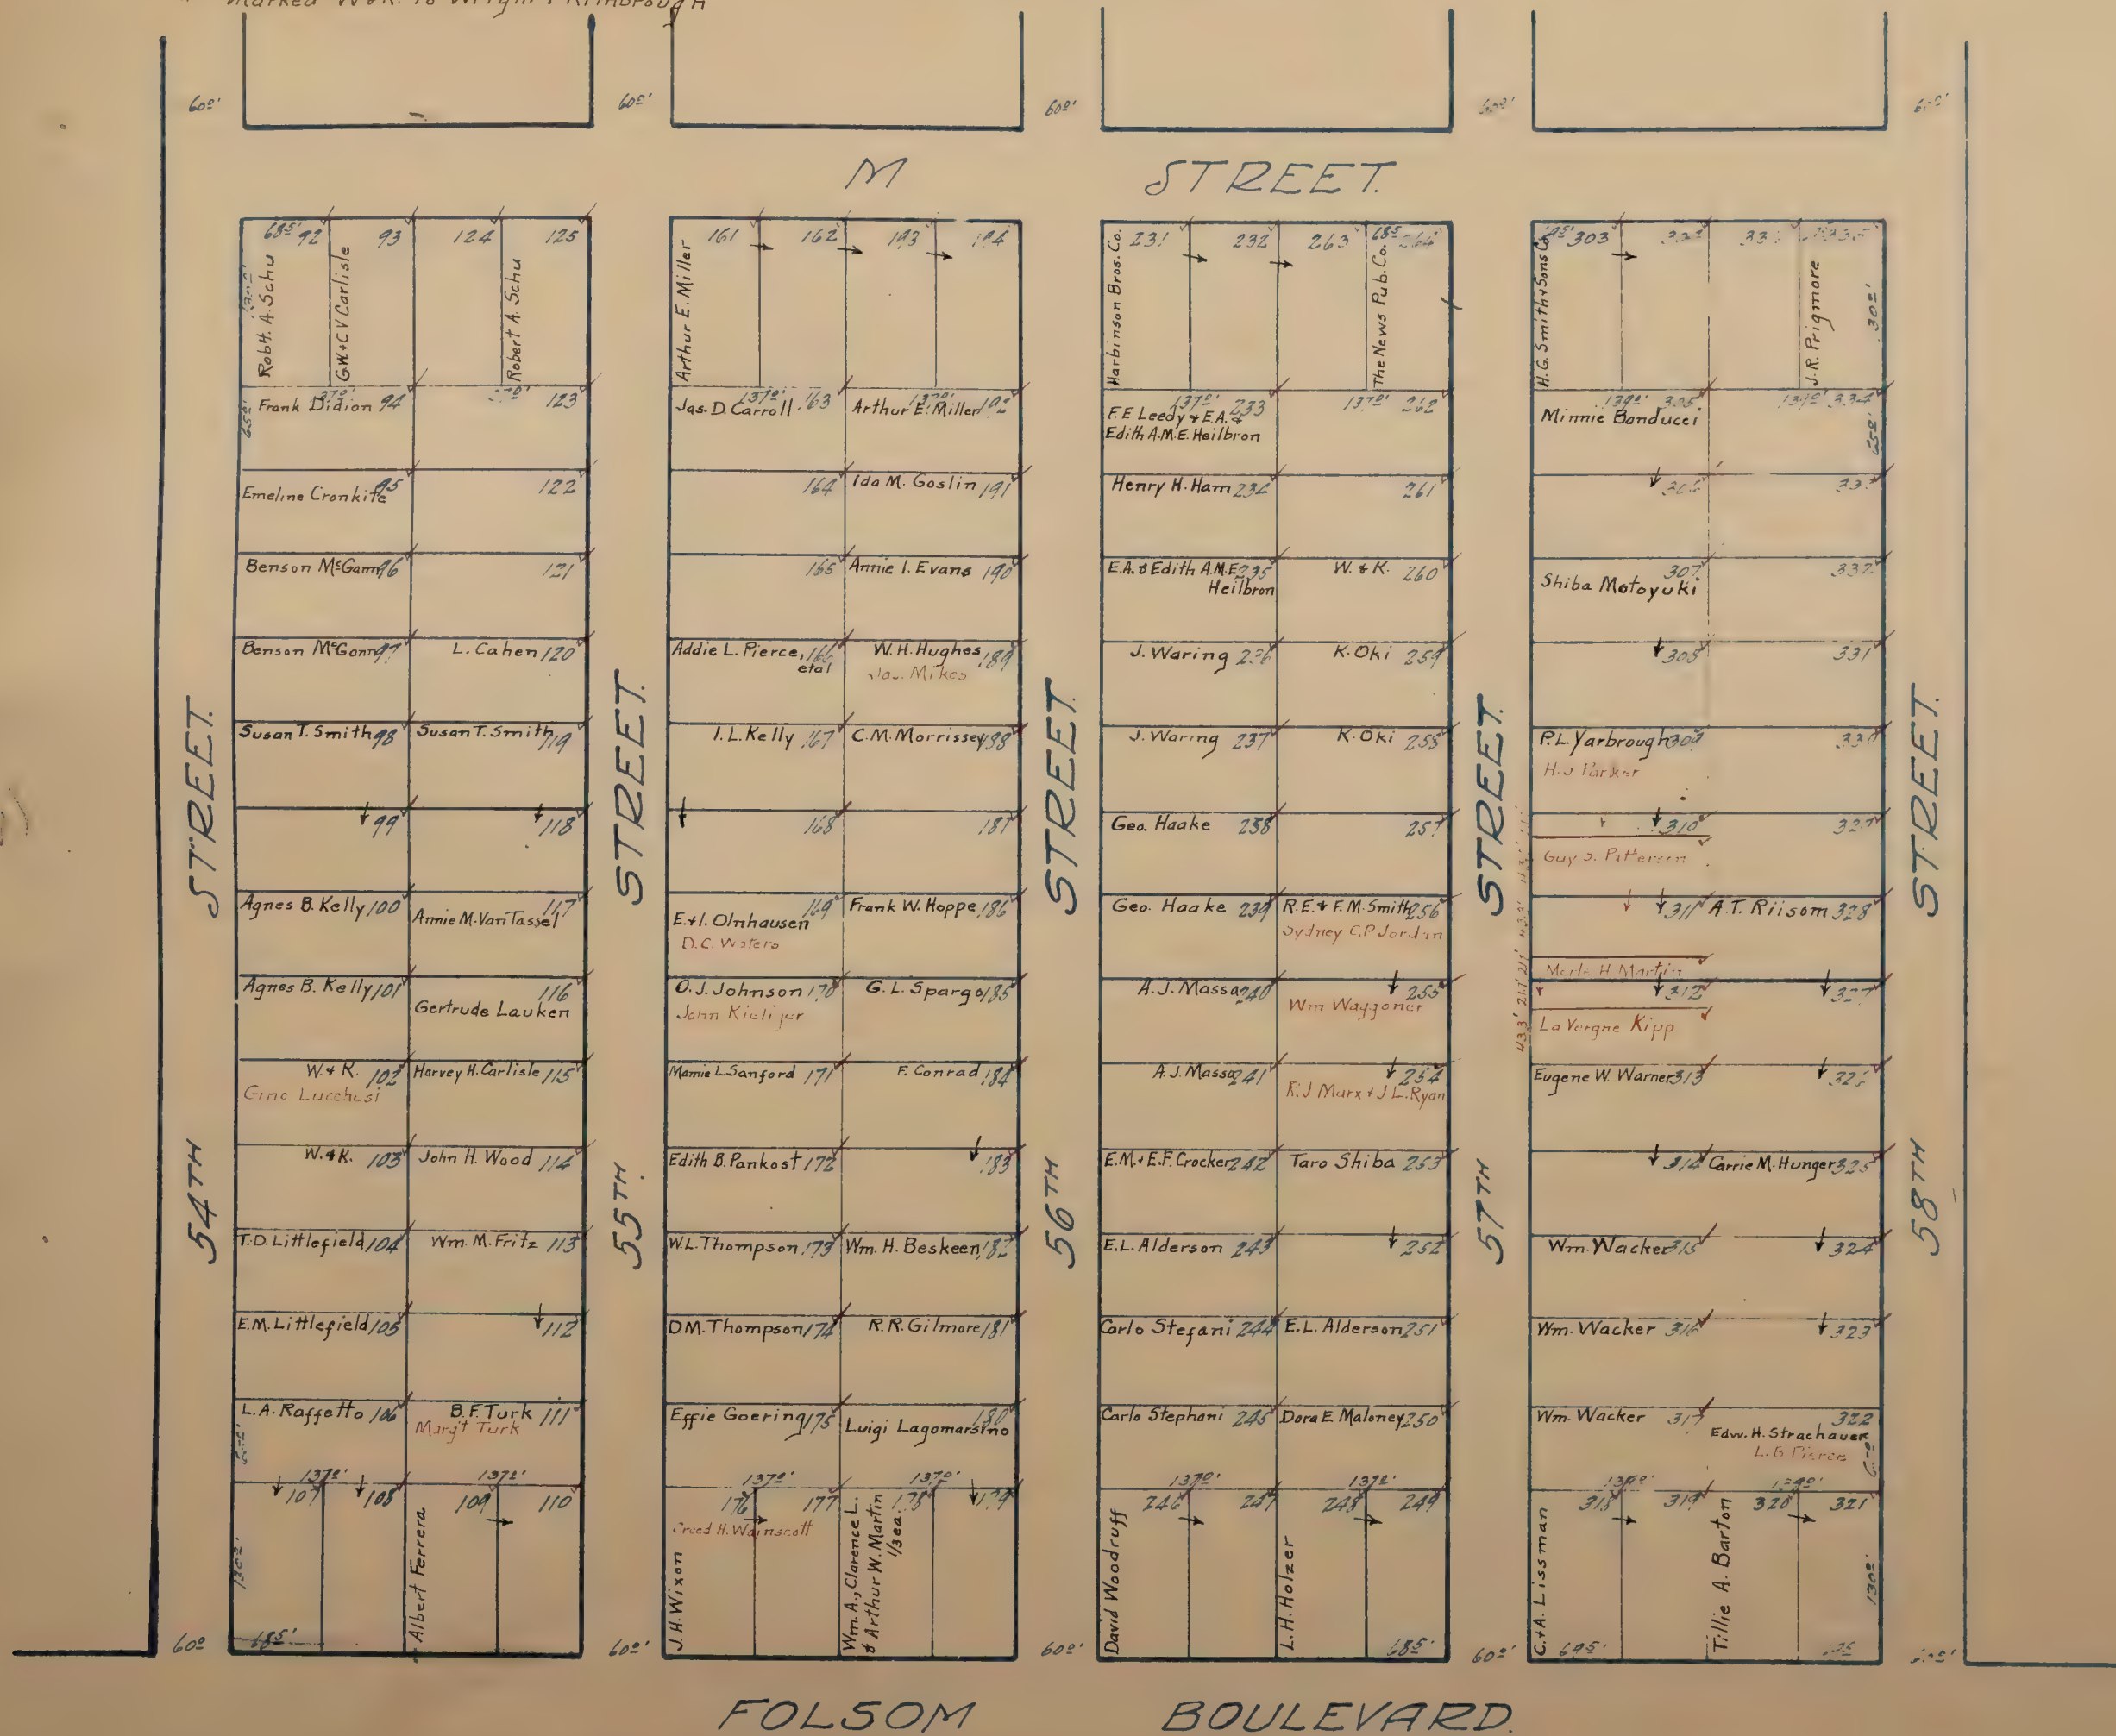 marked W&K. to Wright & Kimbrough
60º'
60º'
60º'
M STREET.
68⁵' 92
93
124
125
Robt. A. Schu
G.W.+C.V. Carlisle
Robert A. Schu
Frank Didion 94
123
Emeline Cronkite 95
122
Benson McGann 96
121
Benson McGann 97
L. Cahen 120
Susan T. Smith 98
Susan T. Smith 119
99
118
Agnes B. Kelly 100
117
Annie M. Van Tassel
Agnes B. Kelly 101
116
Gertrude Lauken
W. & K. 102
Harvey H. Carlisle 115
Gino Lucchesi
W. & K. 103
John H. Wood 114
T.D. Littlefield 104
Wm. M. Fritz 113
E.M. Littlefield 105
112
L.A. Raffetto 106
B.F. Turk 111
Margt Turk
137º'
137º'
107
108
109
110
Albert Ferrera
130º'
68⁵'
161
162
193
194
Arthur E. Miller
137º'
Jas. D. Carroll 163
Arthur E. Miller 192
164
Ida M. Goslin 191
165
Annie I. Evans 190
Addie L. Pierce, 166
etal
W.H. Hughes 189
Mikes
I.L. Kelly 167
C.M. Morrissey 188
168
187
169
Frank W. Hoppe 186
E.+I. Olnhausen
D.C. Waters
O.J. Johnson 170
G.L. Spargo 185
John
Mamie L. Sanford 171
F. Conrad 184
Edith B. Pankost 172
183
W.L. Thompson 173
Wm. H. Beskeen 182
D.M. Thompson 174
R.R. Gilmore 181
Effie Goering 175
180
Luigi Lagomarsino
137º'
137º'
176
177
178
179
Creed H. Wainscott
J.H. Wixon
Wm. A., Clarence L.
& Arthur W. Martin
1/3 ea.
231
232
263
68⁵' 264
Harbinson Bros. Co.
The News Pub. Co.
137º' 233
137º' 262
F.E. Leedy & E.A. &
Edith A.M.E. Heilbron
Henry H. Ham 234
261
E.A. & Edith A.M.E. 235
Heilbron
W. & K. 260
J. Waring 236
K. Oki 259
J. Waring 237
K. Oki 258
Geo. Haake 238
257
Geo. Haake 239
R.E. & F.M. Smith 256
Sydney C.P. Jordan
A.J. Massa 240
255
Wm Waggoner
A.J. Massa 241
254
R.J. Marx & J.L. Ryan
E.M. & E.F. Crocker 242
Taro Shiba 253
E.L. Alderson 243
252
Carlo Stefani 244
E.L. Alderson 251
Carlo Stephani 245
Dora E. Maloney 250
137º'
137º'
246
247
248
249
David Woodruff
L.H. Holzer
68⁵'
303
H.G. Smith & Sons Co.
J.R. Prigmore
130º'
139º' 305
139º' 334
65º'
Minnie Bonducci
306
333
307
332
Shiba Motoyuki
308
331
P.L. Yarbrough 309
330
H.J. Parker
310
329
Guy S. Patterson
311
A.T. Riisom 328
Merle H. Martin
312
327
La Vergne Kipp
Eugene W. Warner 313
326
314
Carrie M. Hunger 325
Wm. Wacker 315
324
Wm. Wacker 316
323
Wm. Wacker 317
322
Edw. H. Strachauer
L.B. Pierce
139º'
139º'
318
319
320
321
C.+A. Lissman
Tillie A. Barton
130º'
69⁵'
54TH STREET.
55TH STREET.
56TH STREET.
57TH STREET.
58TH STREET.
60º
60º'
60º'
60º'
FOLSOM BOULEVARD.